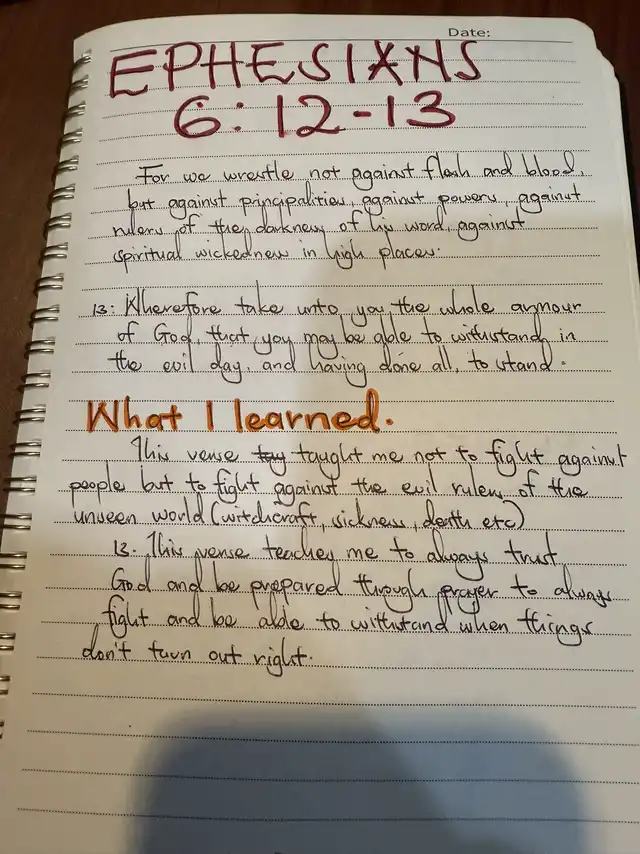 Date:
EPHESIANS
6:12-13
For we wrestle not against flesh and blood,
but against principalities, against powers, against
rulers of the darkness of his word, against
spiritual wickedness in high places.
13: Wherefore take unto you the whole armour
of God, that you may be able to withstand in
the evil day, and having done all, to stand.
What I learned.
This verse taught me not to fight against
people but to fight against the evil rulers of the
unseen world (witchcraft, sickness, death etc)
13. This verse teaches me to always trust
God and be prepared through prayer to always
fight and be able to withstand when things
don't turn out right.